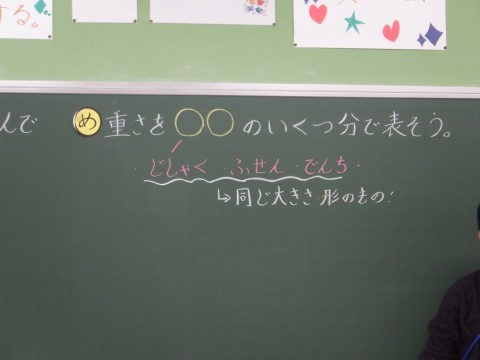 する。
んで
め 重さを○○のいくつ分で表そう。
・じしゃく・ふせん・でんち・
↳同じ大きさ・形のもの!